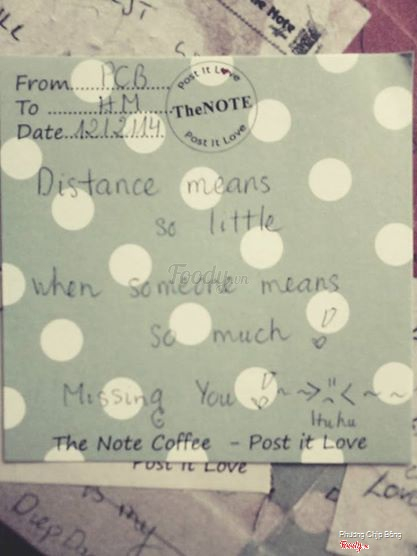 the Note
From PCB
To H.M
Date 12/2/14
Post It Love
TheNOTE
Post It Love
Distance means
so little
when someone means
so much
Missing You ~ ~>"<~ ~
Huhu
The Note Coffee - Post it Love
Post it Love
is my
Foody.vn
Phương Chíp Bông
Foody.vn